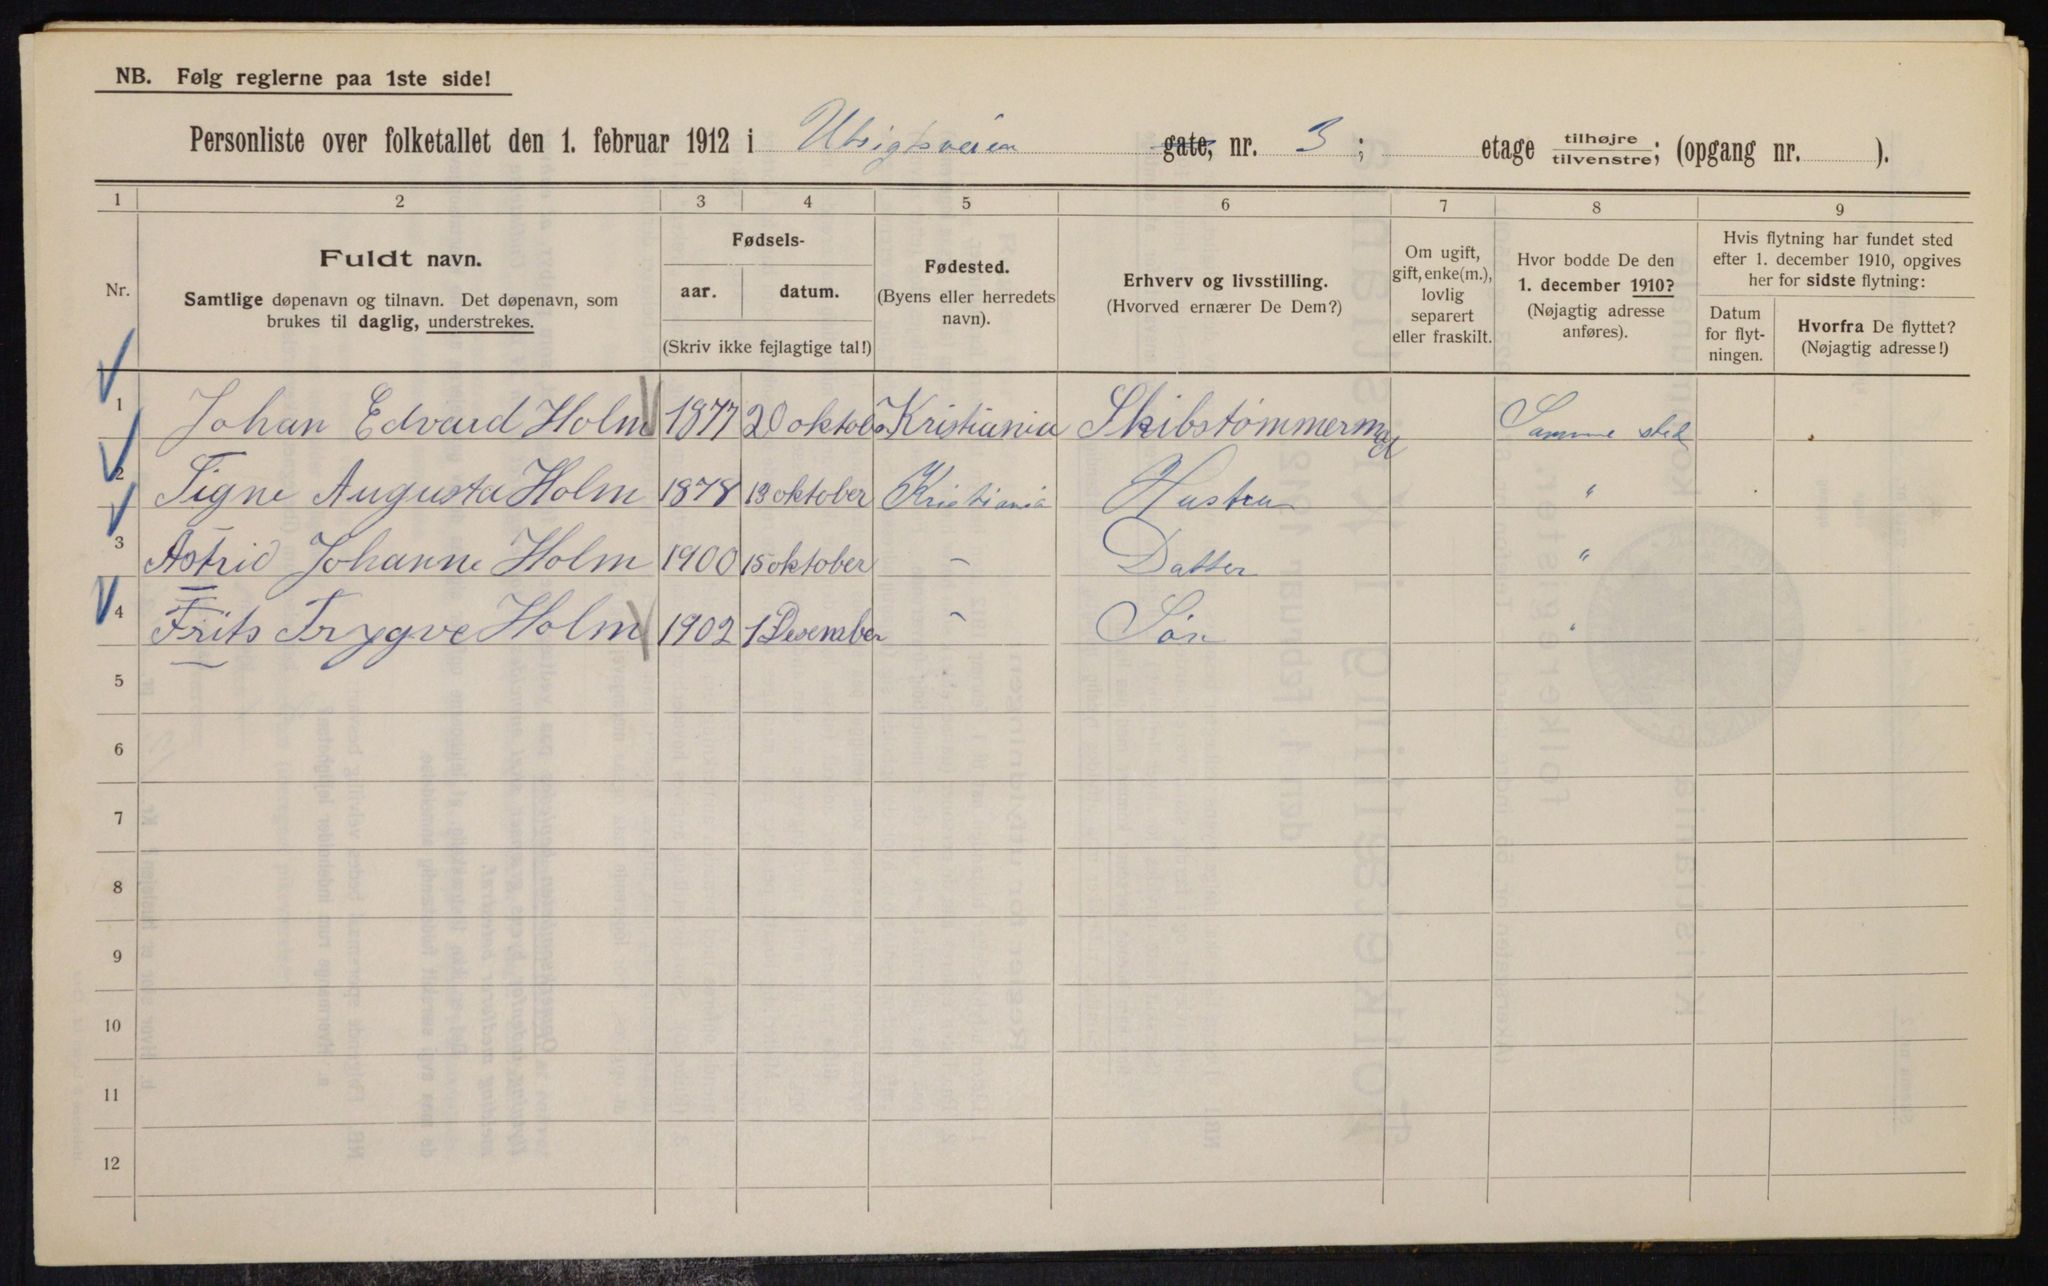 NB. Følg reglerne paa 1ste side!
Personliste over folketallet den 1. februar 1912 i Utsigtsveien gate, nr. 3 ; etage tilhøjre tilvenstre; (opgang nr. ).
1 2 3 4 5 6 7 8 9
Nr.
Fuldt navn.
Samtlige døpenavn og tilnavn. Det døpenavn, som
brukes til daglig, understrekes.
Fødsels-
aar. datum.
(Skriv ikke fejlagtige tal!)
Fødested.
(Byens eller herredets
navn).
Erhverv og livsstilling.
(Hvorved ernærer De Dem?)
Om ugift,
gift, enke(m.),
lovlig
separert
eller fraskilt.
Hvor bodde De den
1. december 1910?
(Nøjagtig adresse
anføres).
Hvis flytning har fundet sted
efter 1. december 1910, opgives
her for sidste flytning:
Datum
for flyt-
ningen.
Hvorfra De flyttet?
(Nøjagtig adresse!)
1 Johan Edvard Holm 1877 20 oktober Kristiania Skibstømmermand Samme sted
2 Signe Augusta Holm 1878 13 oktober Kristiania Hustru "
3 Astrid Johanne Holm 1900 15 oktober - Datter "
4 Frits Trygve Holm 1902 1 Desember - Søn "
5
6
7
8
9
10
11
12